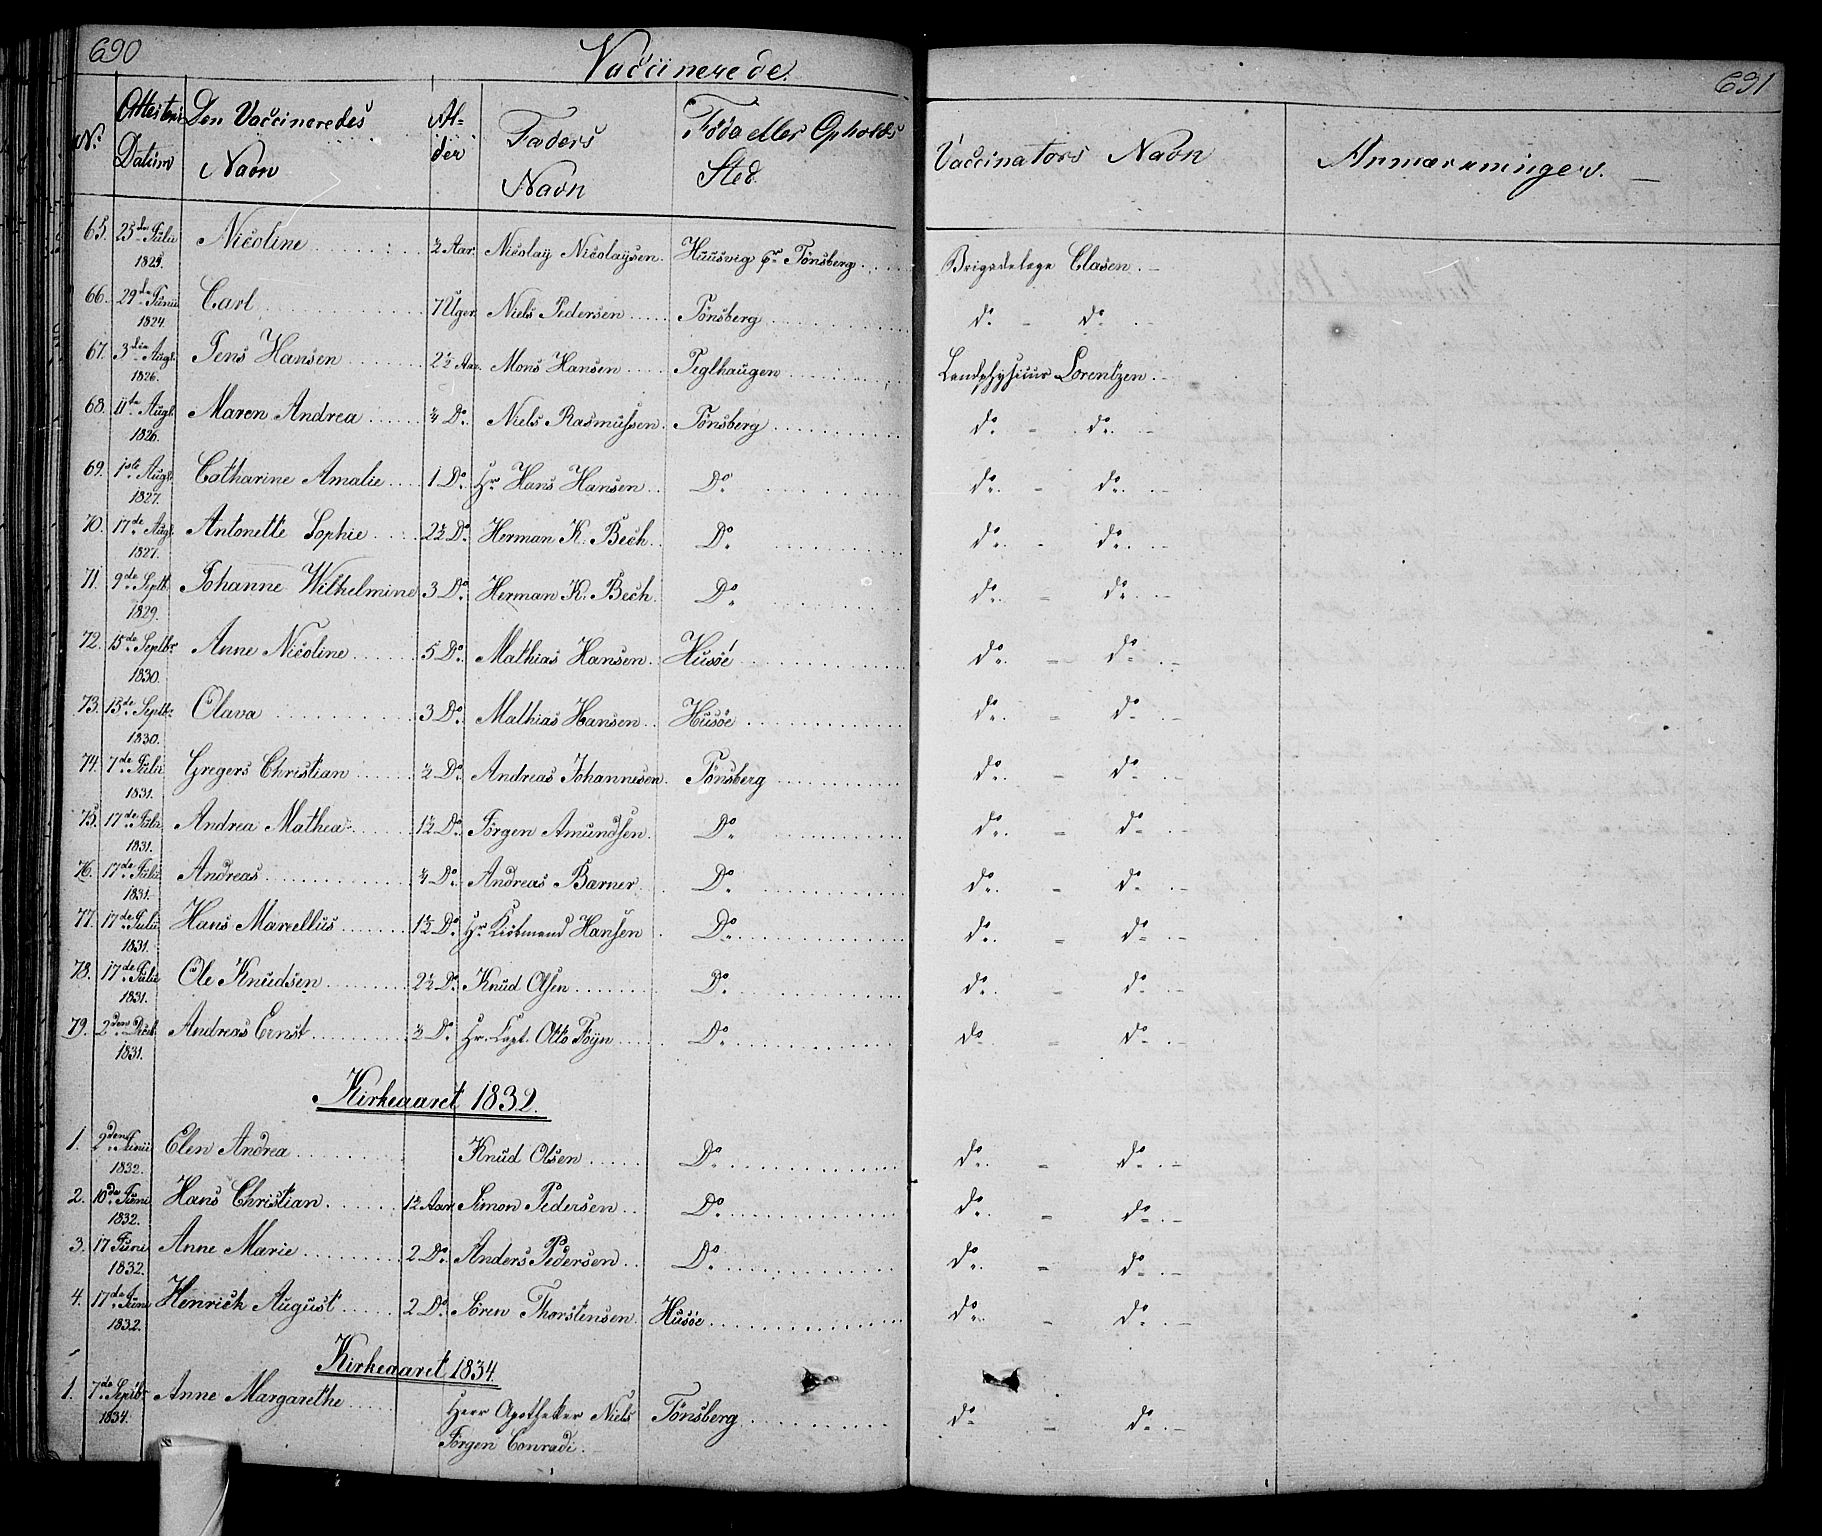 690
Vaccinerede.
631
No.
Attestens Datum
Den Vaccineredes Navn
Alder
Faders Navn
Føde eller Opholds Sted.
Vaccinators Navn
Anmærkninger.
65. 25de Julii 1829. Nicoline ½ Aar. Nicolay Nicolaysen. Huusvig pr Tönsberg. Brigadelæge Clasen.
66. 29de Junii 1824. Carl 7 Uger. Niels Pedersen Tönsberg do do
67. 3die Augt. 1826. Jens Hansen 2½ Aar. Mons Hansen Teglhaugen Landphysicus Lorentzen.
68. 11te Augt. 1826. Maren Andrea ¾ Do. Niels Rasmussen. Tönsberg do do
69. 1ste Augt. 1827. Catharine Amalie 1 Do. Hr Hans Hansen Do. do do
70. 17de Augt. 1827. Antonette Sophie 2½ Do. Herman K. Bech. Do. do do
71. 9de Septb. 1829. Johanne Wilhelmine 3 Do. Herman K. Bech. Do. do do
72. 15de Septbr 1830. Anne Nicoline 5 Do. Mathias Hansen Husöe do do
73. 15de Septbr 1830. Olava 3 Do. Mathias Hansen Husöe do do
74. 7de Julii 1831. Gregers Christian ½ Do. Andreas Johannesen Tönsberg do do
75. 17de Julii 1831. Andrea Mathea 1½ Do. Jörgen Amundsen. Do. do do
76. 17de Julii 1831. Andreas ¾ Do. Andreas Barner Do. do do
77. 17de Julii 1831. Hans Marcellus 1½ Do. Hr. Kiöbmand Hansen Do. do do
78. 17de Julii 1831. Ole Knudsen 2½ Do. Knud Olsen Do. do do
79. 2den Decb. 1831. Andreas Ernst ½ Do. Hr. Capt. Otto Föyn Do. do do
Kirkeaaret 1832.
1. 2den Junii 1832. Elen Andrea Knud Olsen Do. do do
2. 10de Juni 1832. Hans Christian 1½ Aar. Simon Pedersen Do. do do
3. 17 Juni 1832. Anne Marie 2 Do. Anders Pedersen Do. do do
4. 17de Juni 1832. Henrich August 2 Do. Sören Thorstensen. Husöe do do
Kirkeaaret 1834.
1. 7de Septbr 1834. Anne Margarethe Herr Apotheker Niels Tönsberg do do
Jörgen Conradi.